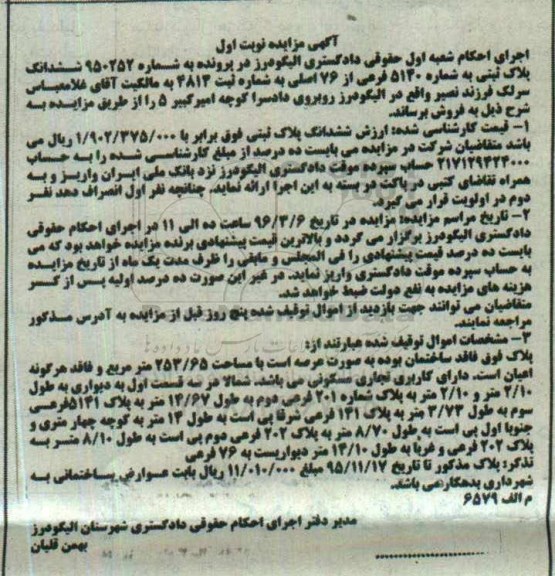 آگهی مزایده نوبت اول
اجرای احکام شعبه اول حقوقی دادگستری الیگودرز در پرونده به شماره ۹۵۰۲۵۲ ششدانگ
پلاک ثبتی به شماره ۵۱۴۰ فرعی از ۷۶ اصلی به شماره ثبت ۴۸۱۴ به مالکیت آقای غلامعباس
سرلک فرزند نصیر واقع در الیگودرز روبروی دادسرا کوچه امیرکبیر ۵ را از طریق مزایده به
شرح ذیل به فروش برساند.
۱- قیمت کارشناسی شده: ارزش ششدانگ پلاک ثبتی فوق برابر با ۱/۹۰۲/۳۷۵/۰۰۰ ریال می
باشد متقاضیان شرکت در مزایده می بایست ده درصد از مبلغ کارشناسی شده را به حساب
۲۱۷۱۲۹۴۲۳۰۰۰ حساب سپرده موقت دادگستری الیگودرز نزد بانک ملی ایران واریز و به
همراه تقاضای کتبی در پاکت در بسته به این اجرا ارائه نماید. چنانچه نفر اول انصراف دهد نفر
دوم در اولویت قرار می گیرد.
۲- تاریخ مراسم مزایده: مزایده در تاریخ ۹۶/۳/۶ ساعت ده الی ۱۱ در اجرای احکام حقوقی
دادگستری الیگودرز برگزار می گردد و بالاترین قیمت پیشنهادی برنده مزایده خواهد بود که می
بایست ده درصد قیمت پیشنهادی را فی المجلس و مابقی را ظرف مدت یک ماه از تاریخ مزایده
به حساب سپرده موقت دادگستری واریز نماید. در غیر این صورت ده درصد اولیه پس از کسر
هزینه های مزایده به نفع دولت ضبط خواهد شد.
متقاضیان می توانند جهت بازدید از اموال توقیف شده پنج روز قبل از مزایده به آدرس مذکور
مراجعه نمایند.
۳- مشخصات اموال توقیف شده عبارتند از:
پلاک فوق فاقد ساختمان بوده به صورت عرصه است با مساحت ۲۵۳/۶۵ متر مربع و فاقد هرگونه
اعیان است. دارای کاربری تجاری مسکونی می باشد. شمالا در سه قسمت اول به دیواری به طول
۲/۱۰ متر و ۲/۱۰ متر به پلاک شماره ۲۰۱ فرعی دوم به طول ۱۴/۶۷ متر به پلاک ۵۱۴۱فرعی
سوم به طول ۳/۷۳ متر به پلاک ۱۴۱ فرعی شرقا پی است به طول ۱۳ متر به کوچه چهار متری و
جنوبا اول پی است به طول ۸/۷۰ متر به پلاک ۲۰۲ فرعی دوم پی است به طول ۸/۱۰ متر به
پلاک ۲۰۲ فرعی و غرباً به طول ۱۴/۱۰ متر دیواریست به ۷۶ فرعی
تذکر: پلاک مذکور تا تاریخ ۹۵/۱۱/۱۷ مبلغ ۱۱/۰۱۰/۰۰۰ ریال بابت عوارض ساختمانی به
شهرداری بدهکار می باشد.
م الف ۶۵۷۹
مدیر دفتر اجرای احکام حقوقی دادگستری شهرستان الیگودرز
بهمن قلیان